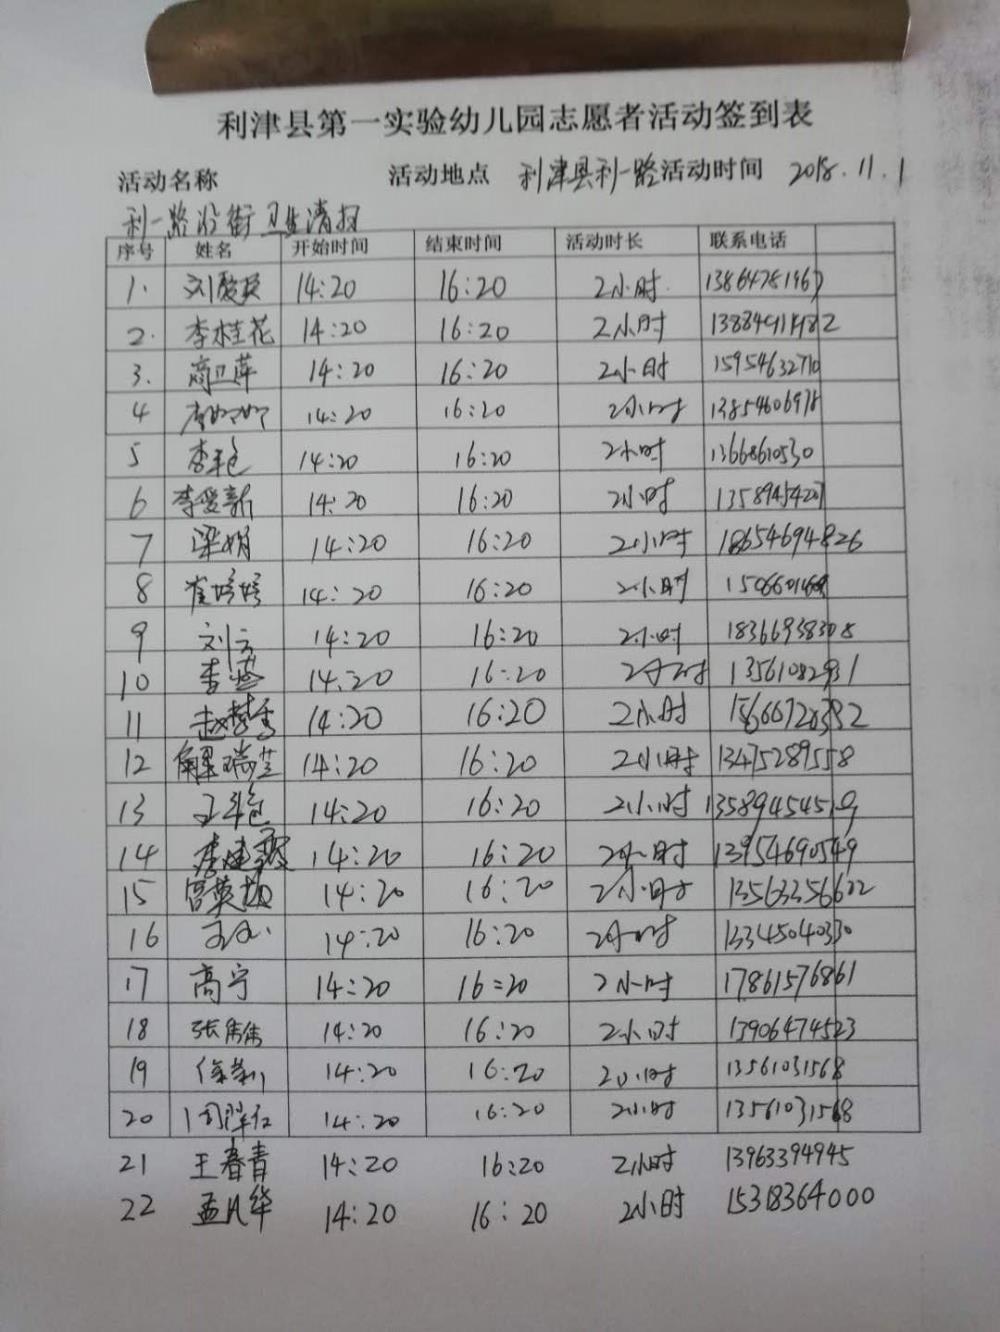 利津县第一实验幼儿园志愿者活动签到表
活动名称 活动地点 利津县利一路 活动时间 2018.11.1
利一路沿街卫生清扫
序号 姓名 开始时间 结束时间 活动时长 联系电话
1. 刘 14:20 16:20 2小时
2. 李桂花 14:20 16:20 2小时
3. 高卫萍 14:20 16:20 2小时 15954632710
4 14:20 16:20 2小时 13854606978
5 李艳 14:20 16:20 2小时 13668610530
6 李爱新 14:20 16:20 2小时
7 梁娟 14:20 16:20 2小时 18654694826
8 崔婷婷 14:20 16:20 2小时
9 刘云 14:20 16:20 2小时 18366938308
10 李 14:20 16:20 2小时 13561082931
11 赵 14:20 16:20 2小时
12 解瑞芝 14:20 16:20 2小时 13475289558
13 王艳 14:20 16:20 2小时 13589454519
14 李建霞 14:20 16:20 2小时 13954690549
15 宫英 14:20 16:20 2小时 13563356622
16 14:20 16:20 2小时 13345040330
17 高宁 14:20 16:20 2小时 17861576861
18 张倩倩 14:20 16:20 2小时 13906474523
19 徐 14:20 16:20 2小时 13561031568
20 14:20 16:20 2小时 13561031568
21 王春青 14:20 16:20 2小时 13963394945
22 孟凡华 14:20 16:20 2小时 15318364000